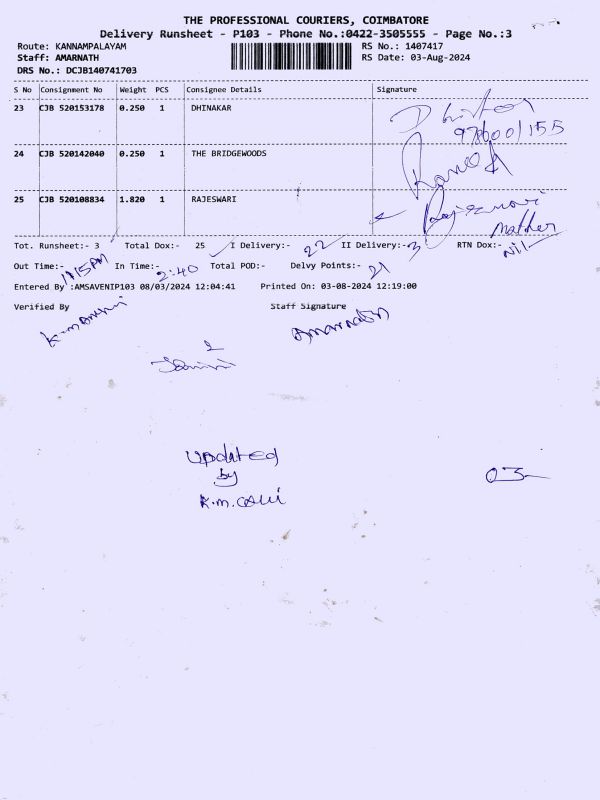 THE PROFESSIONAL COURIERS, COIMBATORE
Delivery Runsheet - P103 - Phone No.:0422-3505555 - Page No.:3
Route: KANNAMPALAYAM RS No.: 1407417
Staff: AMARNATH RS Date: 03-Aug-2024
DRS No.: DCJB140741703
S No Consignment No Weight PCS Consignee Details Signature
23 CJB 520153178 0.250 1 DHINAKAR
24 CJB 520142040 0.250 1 THE BRIDGEWOODS
25 CJB 520108834 1.820 1 RAJESWARI Rajeswari
mother
Tot. Runsheet:- 3 Total Dox:- 25 I Delivery:- 22 II Delivery:- 3 RTN Dox:- Nil
Out Time:- 1:15PM In Time:- 2:40 Total POD:- Delvy Points:- 21
Entered By :AMSAVENIP103 08/03/2024 12:04:41 Printed On: 03-08-2024 12:19:00
Verified By Staff Signature
AMARNATH
updated
by
K.M.
03